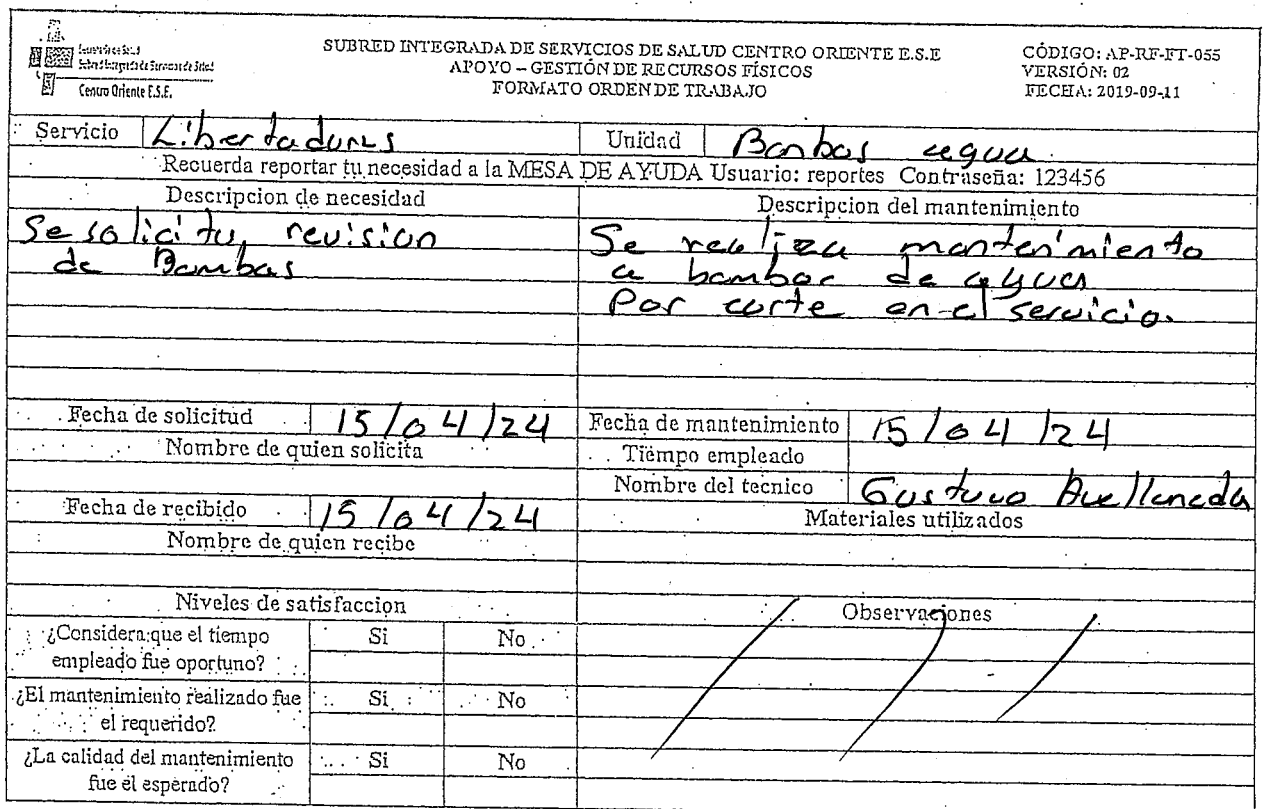 SUBRED INTEGRADA DE SERVICIOS DE SALUD CENTRO ORIENTE E.S.E
APOYO – GESTIÓN DE RECURSOS FÍSICOS
FORMATO ORDEN DE TRABAJO
CÓDIGO: AP-RF-FT-055
VERSIÓN: 02
FECHA: 2019-09-11
Centro Oriente E.S.E.
Servicio Libertadores
Unidad Bombas agua
Recuerda reportar tu necesidad a la MESA DE AYUDA Usuario: reportes Contraseña: 123456
Descripcion de necesidad
Se solicita, revision
de Bombas
Descripcion del mantenimiento
Se realiza mantenimiento
a bombas de agua
Por corte en el servicio.
Fecha de solicitud 15/04/24
Nombre de quien solicita
Fecha de recibido 15/04/24
Nombre de quien recibe
Fecha de mantenimiento 15/04/24
Tiempo empleado
Nombre del tecnico Gustavo Avellaneda
Materiales utilizados
Niveles de satisfaccion
¿Considera que el tiempo
empleado fue oportuno?
Si No
¿El mantenimiento realizado fue
el requerido?
Si No
¿La calidad del mantenimiento
fue el esperado?
Si No
Observaciones